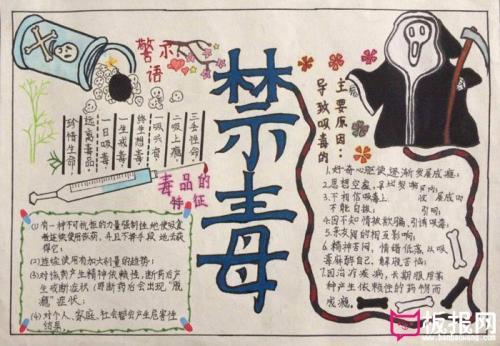 警示语
珍惜生命
远离毒品
一日吸毒
一生戒毒
终生想毒
一吸
二吸上瘾
三去性命
毒品的
特征
(1)有一种不可抗拒的力量强制性地使吸食
者连续使用该药,并且不择手段地去获
得它;
(2)连续使用有加大剂量的趋势;
(3)对该药产生精神依赖性,断药后产
生戒断症状(即断药后会出现“脱
瘾”症状;
(4)对个人、家庭、社会都会产生危害性
结果。
禁毒
导致吸毒的
主要原因:
1.好奇心驱使,逐渐发展成瘾;
2.思想空虚,寻
3.不相信吸毒上 发展成
不能自拔; 引吗;
4.因不知情被欺骗,引诱吸毒;
5.亲友间的相互影响;
6.精神苦闷,情绪低落,从吸
毒麻醉自己,解脱苦恼;
7.因治疗疾病,长期服用某
种产生依赖性的药物而
成瘾。
板报网
www.banbaowang.com